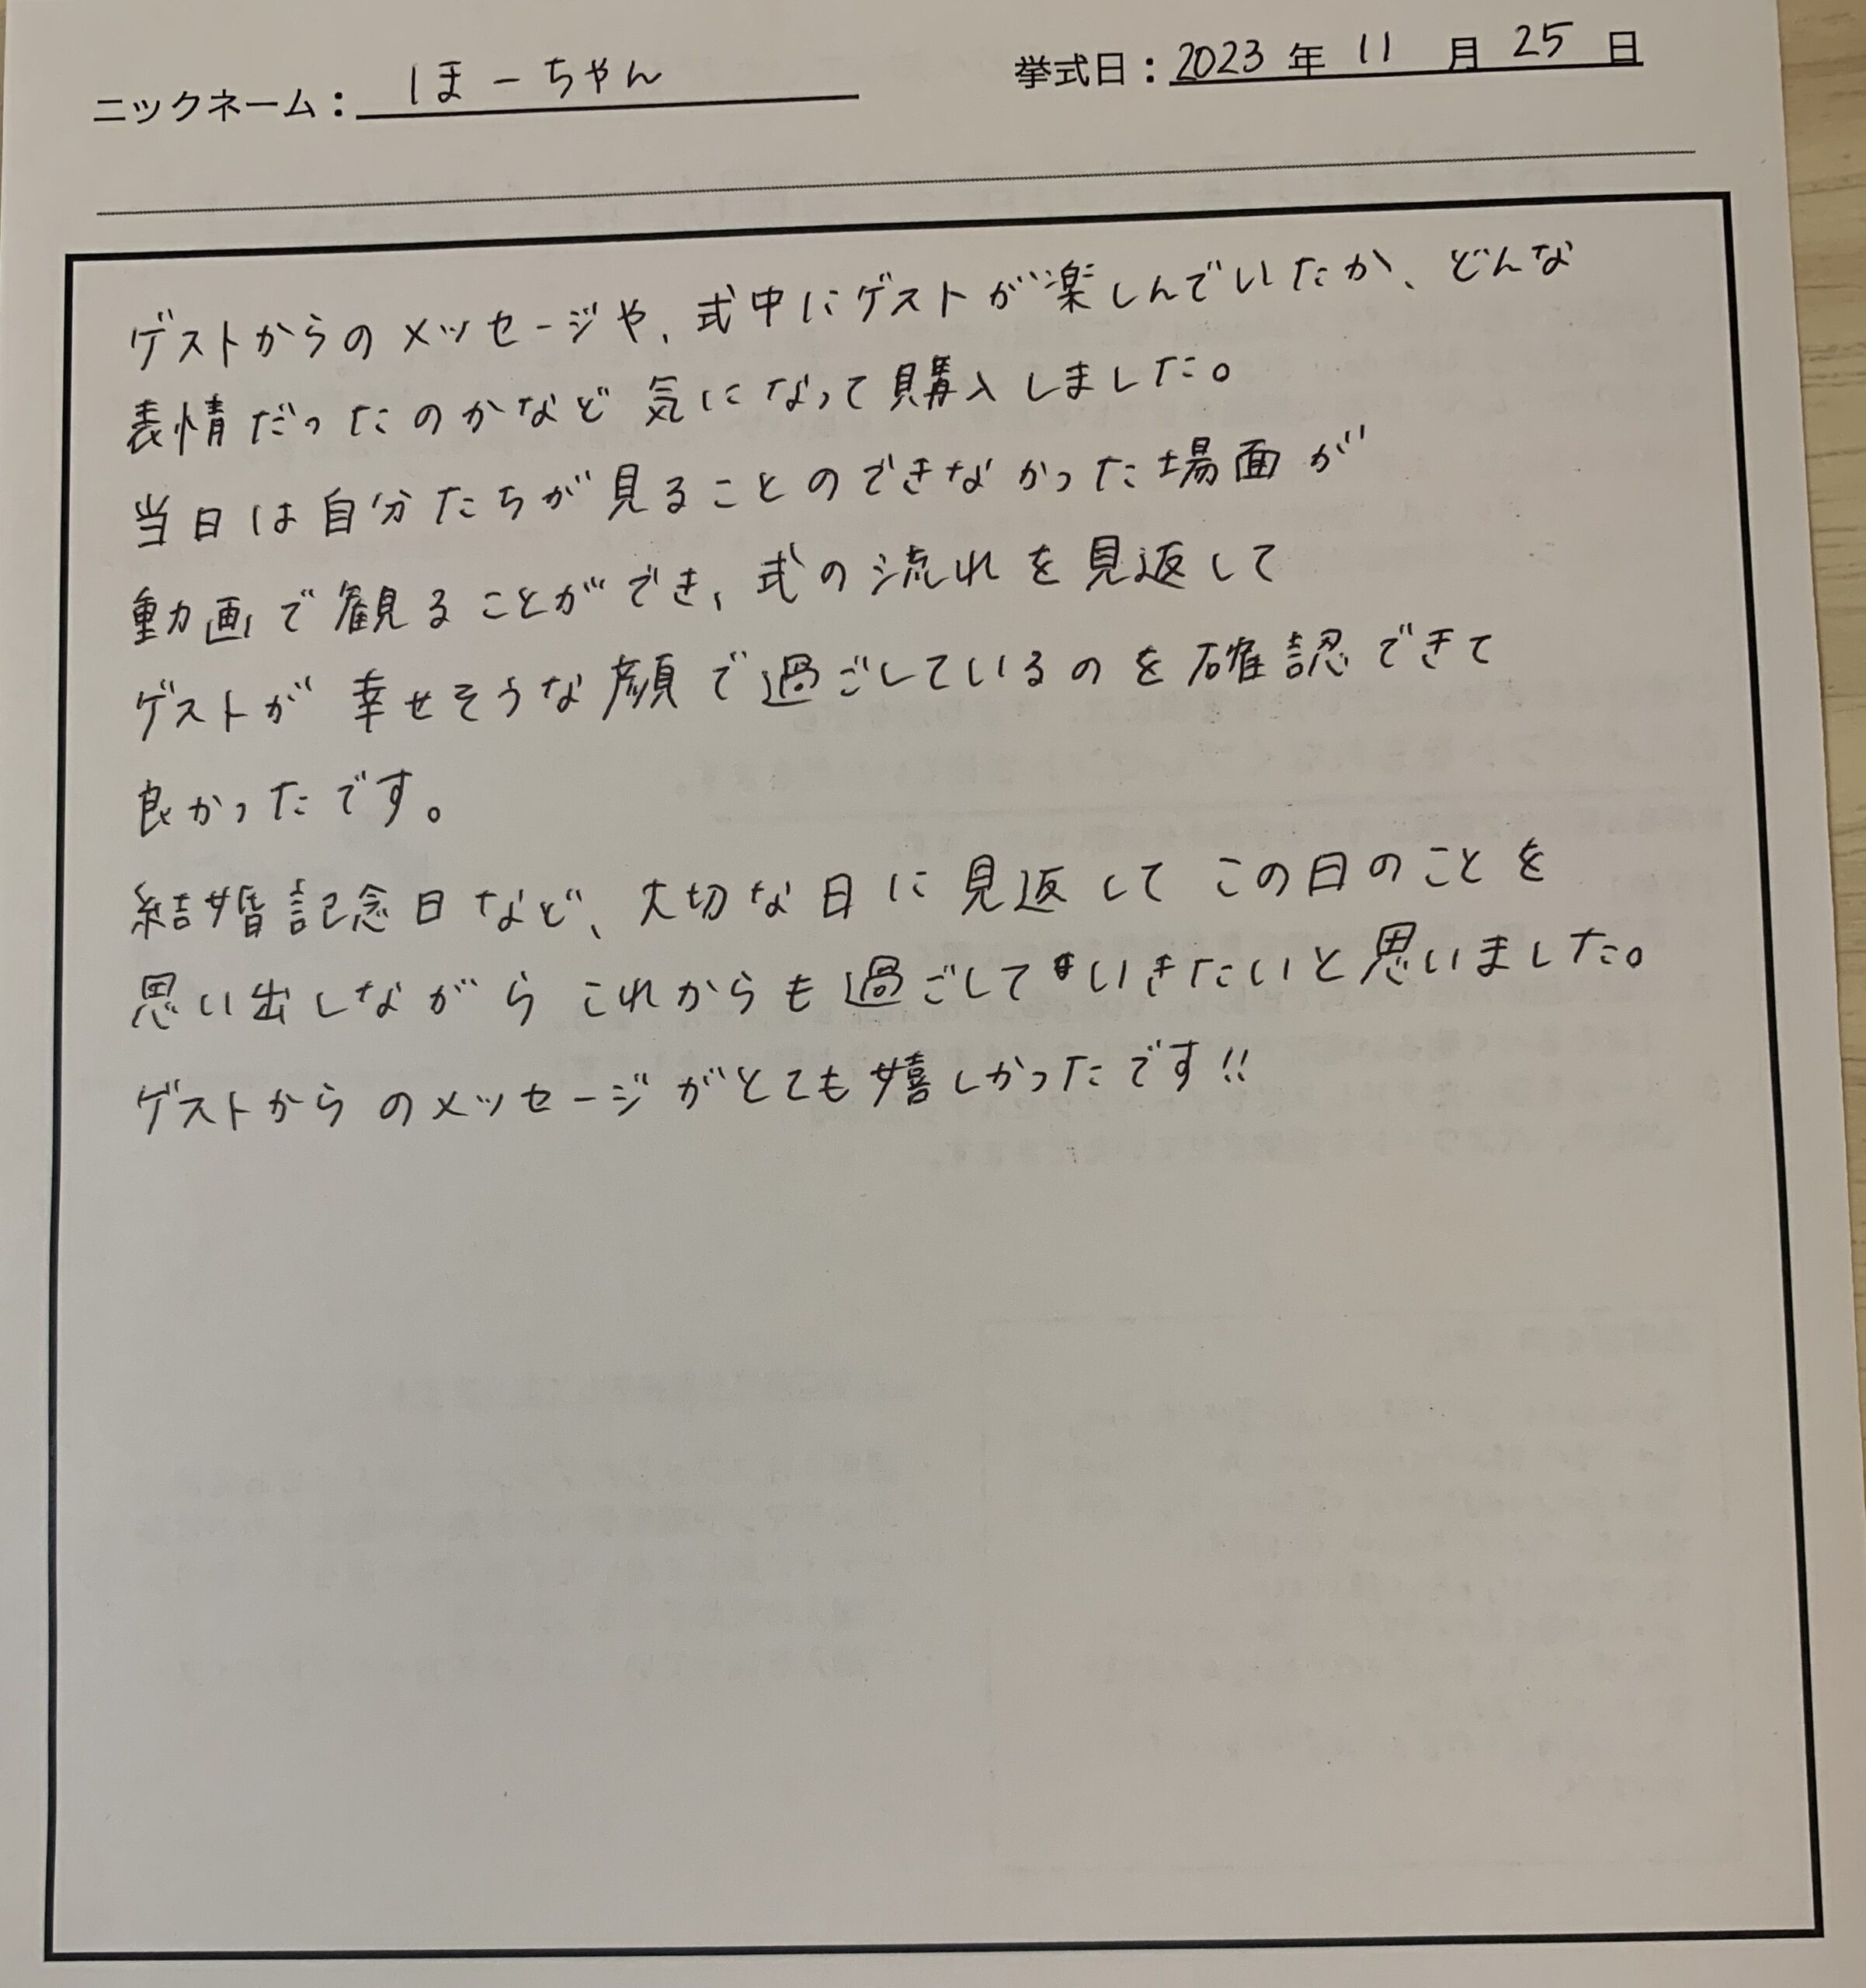 ニックネーム：ほーちゃん 挙式日：2023年11月25日
ゲストからのメッセージや、式中にゲストが楽しんでいたか、どんな
表情だったのかなど気になって購入しました。
当日は自分たちが見ることのできなかった場面が
動画で観ることができ、式の流れを見返して
ゲストが幸せそうな顔で過ごしているのを確認できて
良かったです。
結婚記念日など、大切な日に見返してこの日のことを
思い出しながらこれからも過ごしていきたいと思いました。
ゲストからのメッセージがとても嬉しかったです!!